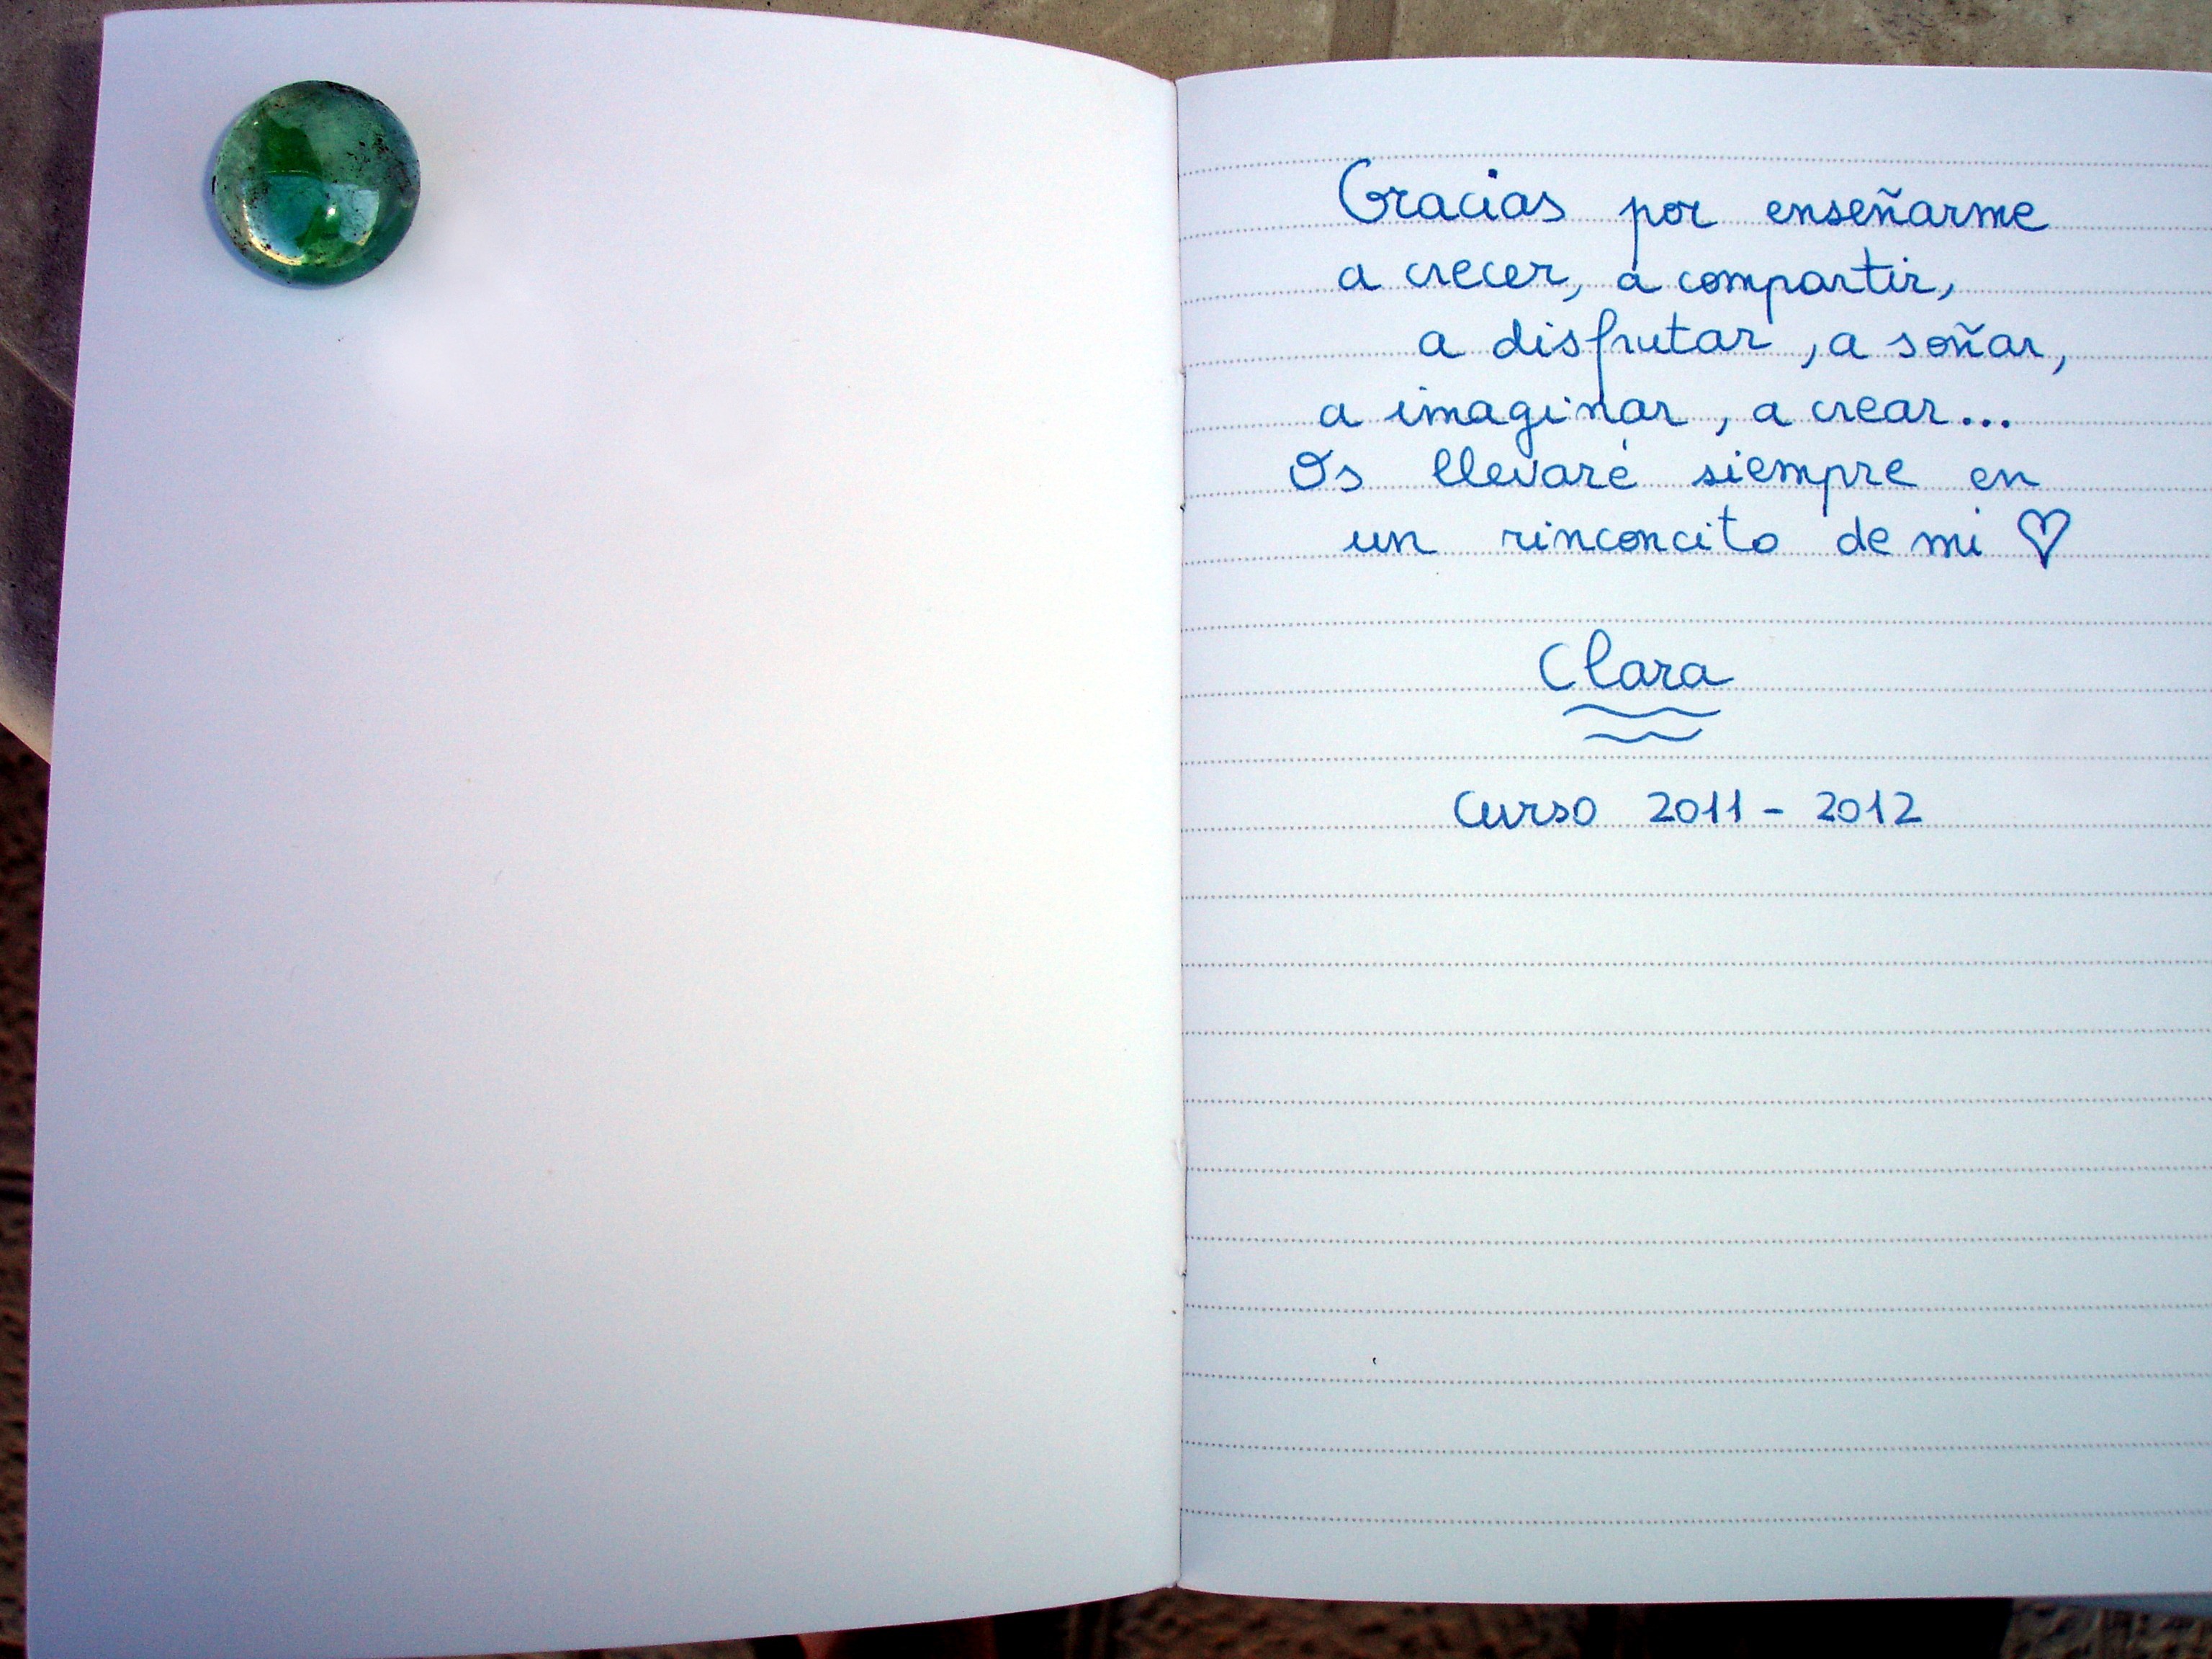 Gracias por enseñarme
a crecer, a compartir,
a disfrutar, a soñar,
a imaginar, a crear...
Os llevaré siempre en
un rinconcito de mi ♡
Clara
Curso 2011 - 2012